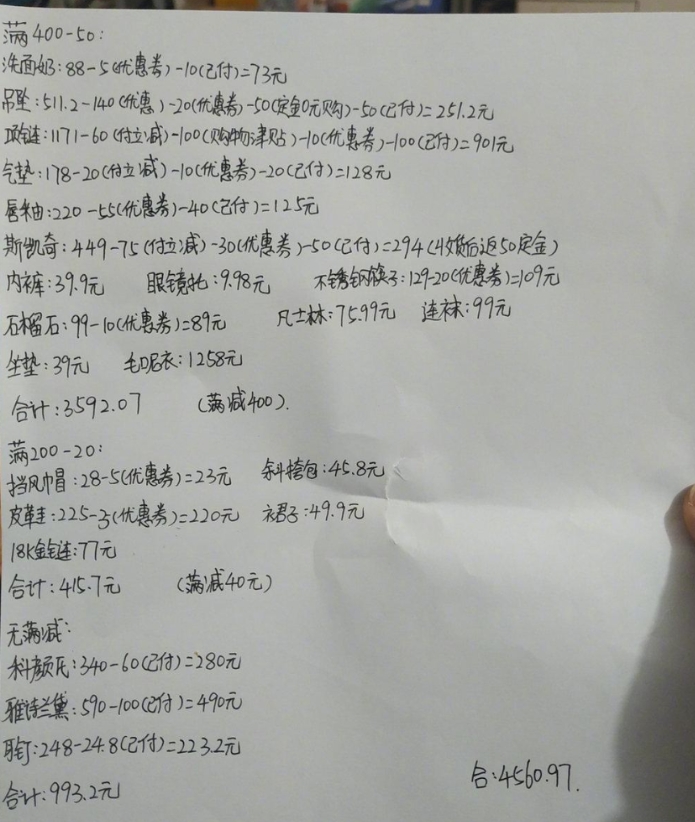 满400-50:
洗面奶:88-5(优惠券)-10(已付)=73元
吊坠:511.2-140(优惠)-20(优惠券)-50(定金0元购)-50(已付)=251.2元
项链:1171-60(付立减)-100(购物津贴)-10(优惠券)-100(已付)=901元
气垫:178-20(付立减)-10(优惠券)-20(已付)=128元
唇釉:220-55(优惠券)-40(已付)=125元
斯凯奇:449-75(付立减)-30(优惠券)-50(已付)=294(收货后返50定金)
内裤:39.9元 眼镜托:9.98元 不锈钢筷子:129-20(优惠券)=109元
石榴石:99-10(优惠券)=89元 凡士林:75.99元 连袜:99元
坐垫:39元 毛呢衣:1258元
合计:3592.07 (满减400).
满200-20:
挡风帽:28-5(优惠券)=23元 斜挎包:45.8元
皮鞋:225-5(优惠券)=220元 裙子:49.9元
18K金链:77元
合计:415.7元 (满减40元)
无满减:
科颜氏:340-60(已付)=280元
雅诗兰黛:590-100(已付)=490元
耳钉:248-24.8(已付)=223.2元
合计:993.2元
合:4560.97.